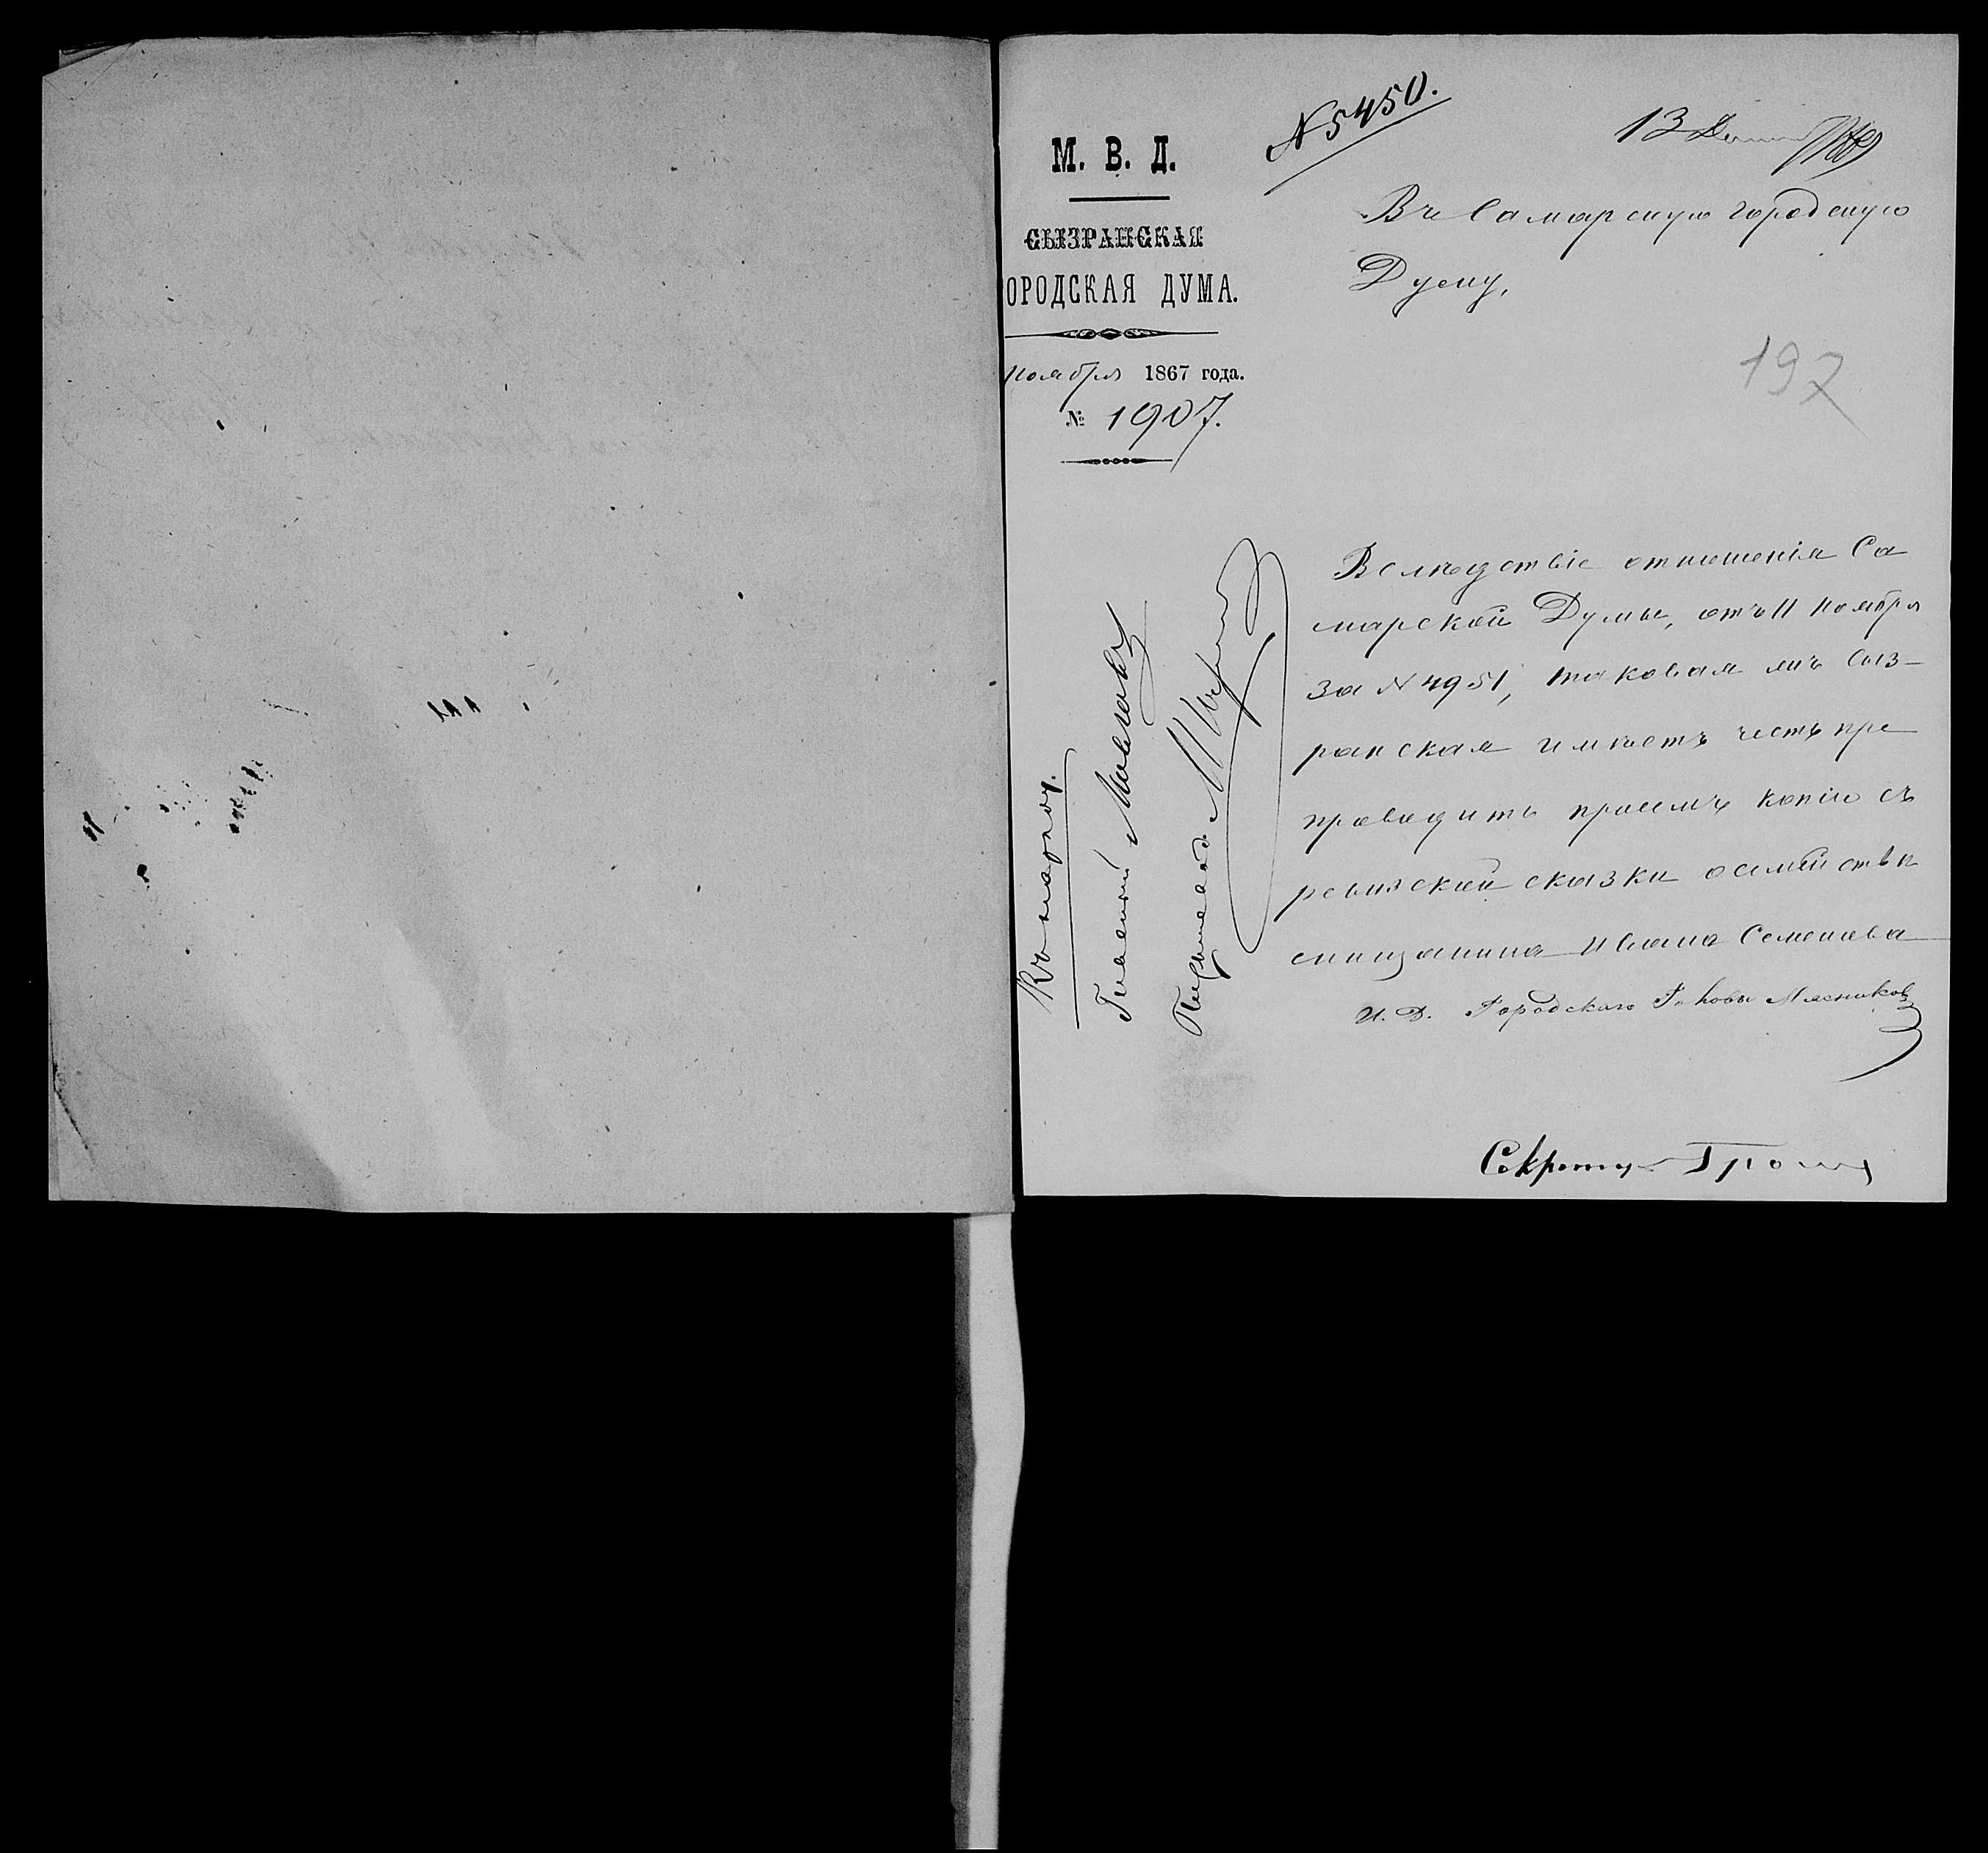 № 5450.
13
М. В. Д.
СЫЗРАНСКАЯ
ОРОДСКАЯ ДУМА.
Ноября 1867 года.
№ 1907.
Въ Самарскую городскую
Думу,
197
Вслѣдствіе отношенія Са
марской Думы, отъ 11 Ноября
за № 4951, таковая изъ Сыз-
ранская имѣетъ честь пре
проводить присемъ копію съ
ревизской сказки осемѣйствѣ
мищанина Ивана Семенова
И. Д. Городскаго Головы Мясниковъ
Секретарь
Къ докладу.
Гласный